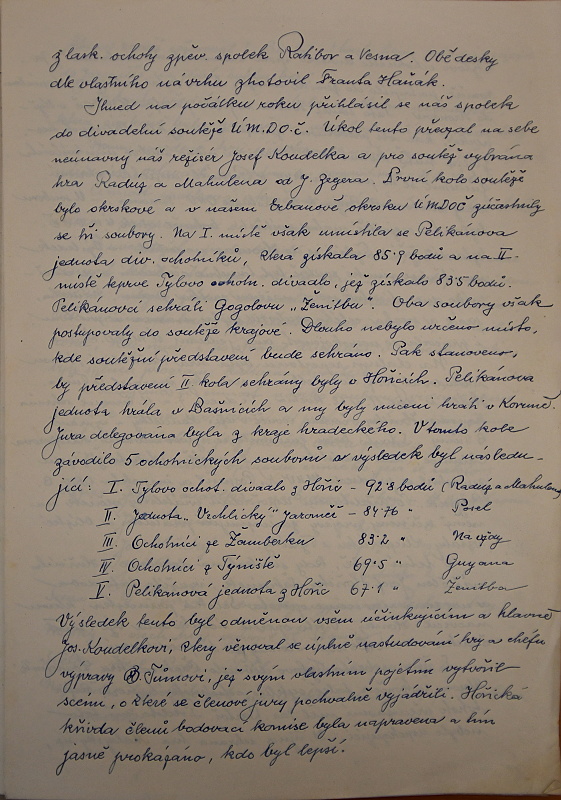 z lask. ochoty zpěv. spolek Ratibor a Vesna. Obě desky
dle vlastního návrhu zhotovil Franta Haňák.
Ihned na počátku roku přihlásil se náš spolek
do divadelní soutěže ÚM.D.O.č. Úkol tento převzal na sebe
neúnavný náš režisér Josef Koudelka a pro soutěž vybrána
hra Radúz a Mahulena od J. Zeyera. První kolo soutěže
bylo okrskové a v našem Erbanově okrsku ÚMDOČ zúčastnily
se tři soubory. Na I. místě však umístila se Pelikánova
jednota div. ochotníků, která získala 85.9 bodů a na II.
místě teprve Tylovo ochotn. divadlo, jež získalo 83.5 bodů.
Pelikánovci sehráli Gogolovu „Ženitbu". Oba soubory však
postupovaly do soutěže krajové. Dlouho nebylo určeno místo,
kde soutěžní představení bude sehráno. Pak stanoveno,
by představení II. kola sehrány byly v Hořicích. Pelikánova
jednota hrála v Bašnicích a my byly nuceni hráti v Koruně.
Jura delegována byla z kraje hradeckého. V tomto kole
závodilo 5 ochotnických souborů a výsledek byl následu-
jící: I. Tylovo ochot. divadlo z Hořic - 92.8 bodů (Radúz a Mahulena)
II. Jednota „Vrchlický" Jaroměř - 84.76 " Posel
III. Ochotníci ze Žamberku 83.2 " Na vždy
IV. Ochotníci z Týniště 69.5 " Guyana
V. Pelikánová jednota z Hořic 67.1 " Ženitba
Výsledek tento byl odměnou všem účinkujícím a hlavně
Jos. Koudelkovi, který věnoval se úplně nastudování hry a chéfu
výpravy Tůmovi, jež svým vlastním pojetím vytvořil
scénu, o které se členové jury pochvalně vyjádřili. Hořická
křivda členů bodovací komise byla napravena a tím
jasně prokázáno, kdo byl lepší.